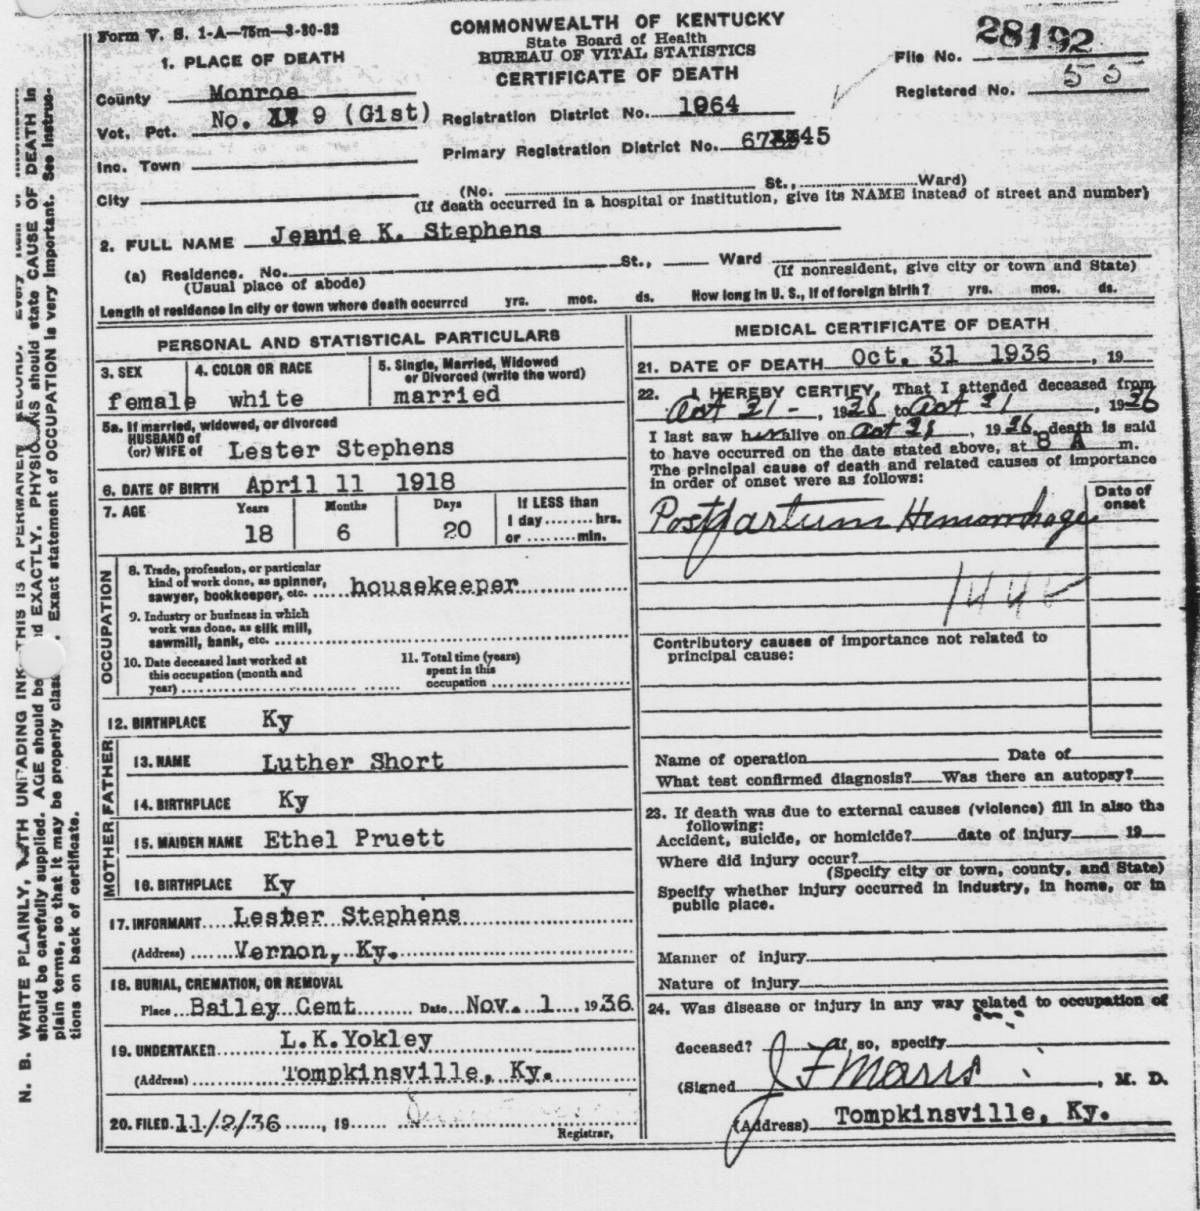 Form V. S. 1-A—75m—3-30-33
COMMONWEALTH OF KENTUCKY
State Board of Health
BUREAU OF VITAL STATISTICS
CERTIFICATE OF DEATH
File No. 28192
Registered No. 55
1. PLACE OF DEATH
County Monroe
Vot. Pct. No. 9 (Gist)
Registration District No. 1064
Inc. Town
Primary Registration District No. 6745
City
(No. St., Ward)
(If death occurred in a hospital or institution, give its NAME instead of street and number)
2. FULL NAME Jennie K. Stephens
(a) Residence. No. St., Ward
(Usual place of abode)
(If nonresident, give city or town and State)
Length of residence in city or town where death occurred yrs. mos. ds. How long in U. S., if of foreign birth? yrs. mos. ds.
PERSONAL AND STATISTICAL PARTICULARS
3. SEX
female
4. COLOR OR RACE
white
5. Single, Married, Widowed
or Divorced (write the word)
married
5a. If married, widowed, or divorced
HUSBAND of
(or) WIFE of Lester Stephens
6. DATE OF BIRTH April 11 1918
7. AGE Years Months Days If LESS than
18 6 20 1 day........hrs.
or ........min.
OCCUPATION
8. Trade, profession, or particular
kind of work done, as spinner,
sawyer, bookkeeper, etc. housekeeper
9. Industry or business in which
work was done, as silk mill,
sawmill, bank, etc.
10. Date deceased last worked at
this occupation (month and
year)
11. Total time (years)
spent in this
occupation
12. BIRTHPLACE Ky
FATHER
13. NAME Luther Short
14. BIRTHPLACE Ky
MOTHER
15. MAIDEN NAME Ethel Pruett
16. BIRTHPLACE Ky
17. INFORMANT Lester Stephens
(Address) Vernon, Ky.
18. BURIAL, CREMATION, OR REMOVAL
Place Bailey Cemt Date Nov. 1, 1936
19. UNDERTAKER L.K.Yokley
(Address) Tompkinsville, Ky.
20. FILED 11/2/36, 19
Registrar,
MEDICAL CERTIFICATE OF DEATH
21. DATE OF DEATH Oct. 31 1936, 19
22. I HEREBY CERTIFY, That I attended deceased from
Oct 31, 1936 to Oct 31, 1936
I last saw her alive on Oct 31, 1936, death is said
to have occurred on the date stated above, at 8 A m.
The principal cause of death and related causes of importance
in order of onset were as follows:
Date of
onset
Postpartum Hemorrhage
Contributory causes of importance not related to
principal cause:
Name of operation Date of
What test confirmed diagnosis? Was there an autopsy?
23. If death was due to external causes (violence) fill in also the
following:
Accident, suicide, or homicide? date of injury 19
Where did injury occur?
(Specify city or town, county, and State)
Specify whether injury occurred in industry, in home, or in
public place.
Manner of injury
Nature of injury
24. Was disease or injury in any way related to occupation of
deceased? If so, specify
(Signed J F Marrs, M. D.
(Address) Tompkinsville, Ky.
N. B. WRITE PLAINLY, WITH UNFADING INK—THIS IS A PERMANENT RECORD. Every item of information
should be carefully supplied. AGE should be EXACTLY. PHYSICIANS should state CAUSE OF DEATH in
plain terms, so that it may be properly class. Exact statement of OCCUPATION is very important. See instruc-
tions on back of certificate.